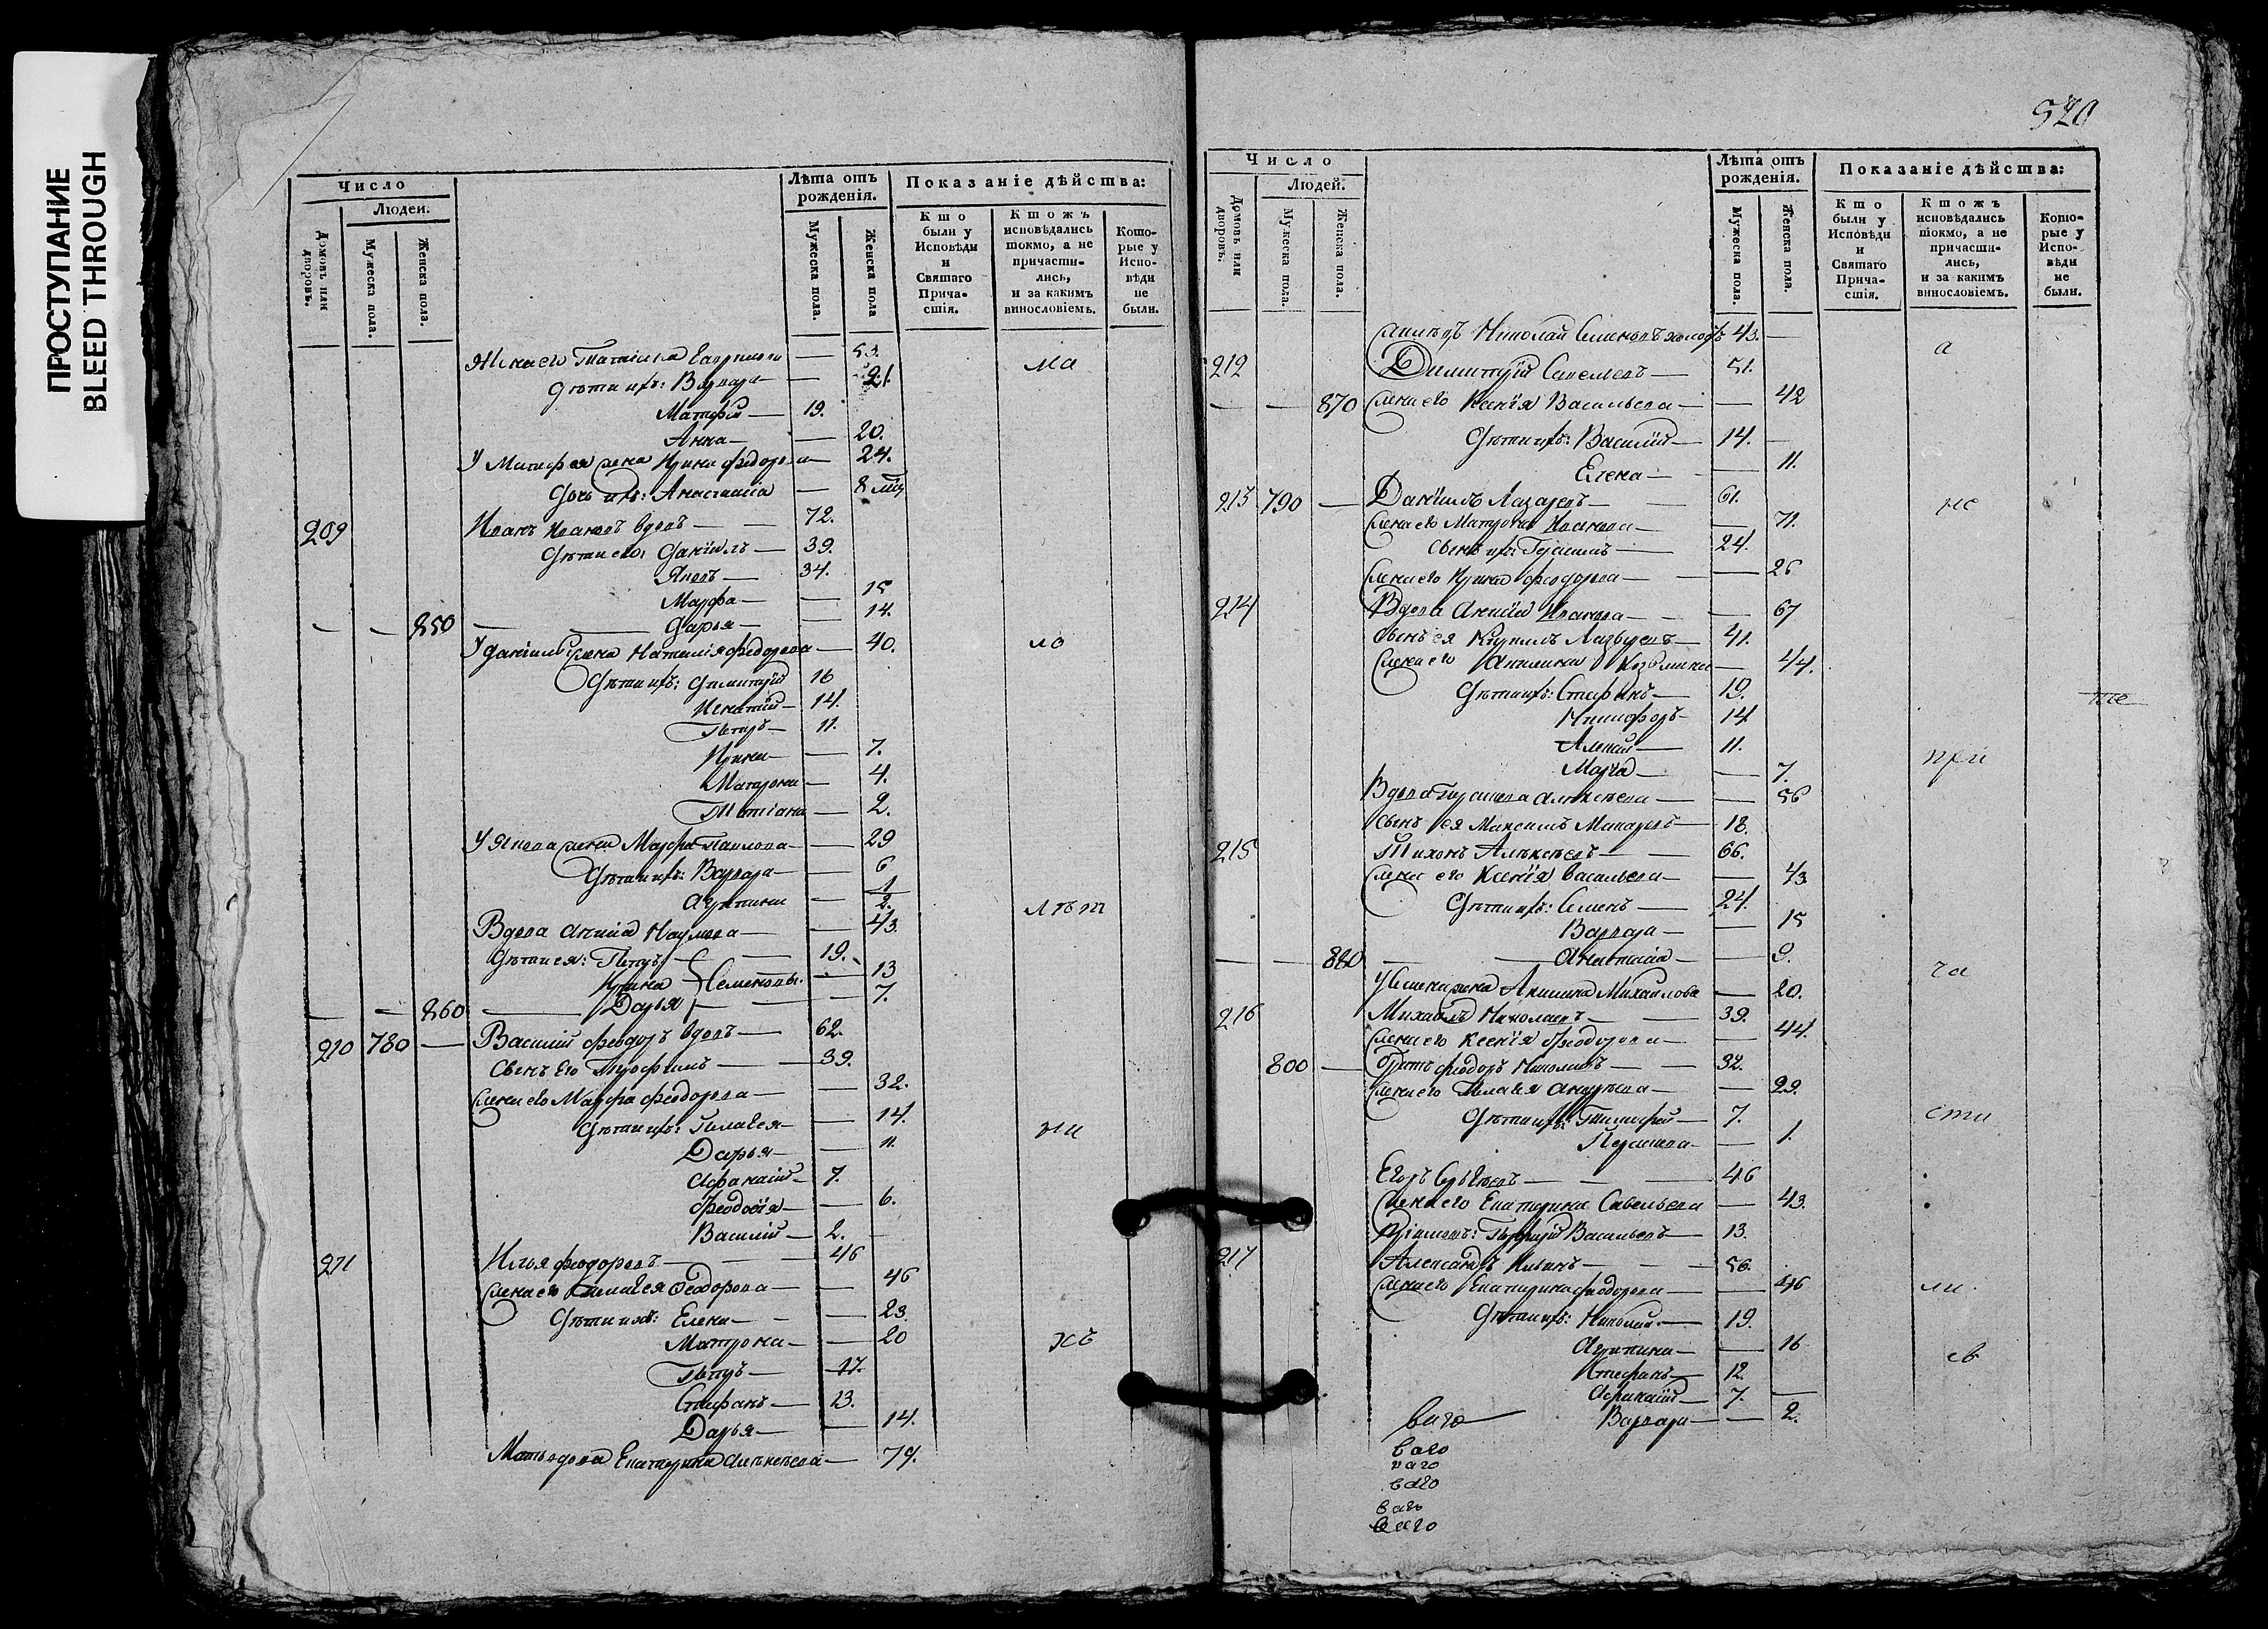 ПРОСТУПАНИЕ
BLEED THROUGH
Число
Людей.
Домовъ или дворовъ.
Мужеска пола.
Женска пола.
Лѣта отъ рожденія.
Мужеска пола.
Женска пола
Показаніе дѣйства:
Кто были у Исповѣди и Святаго Причастія.
Ктожъ исповѣдались токмо, а не причастились, и за какимъ винословіемъ.
Которые у Исповѣди не были.
Жена его Татіана — 53. ма
Дѣти ихъ: Варвара — 21.
Матфій — 19.
Анна — 20.
У Матфея жена Ирина Федорова — 24.
Дочь ихъ: Анастасіа — 8
209 Иванъ Ивановъ вдовъ — 72.
Дѣти его: Даніилъ — 39.
Яковъ — 34.
Марфа — 15
— — 850 — Дарья — 14.
У Даніила жена Наталія Федорова — 40. ло
Дѣти ихъ: Димитрій 16
Игнатій — 14.
Петръ — 11.
Ирина — 7.
Матрона — 4.
Татіана — 2.
У Якова жена Марфа Павлова — 29
Дѣти ихъ: Варвара — 6
Агрипина — 2.
Вдова Наумова — 43. лѣт
Дѣти ея: Петръ — 19.
Ирина Семеновы. — 13
— — 860 — Дарья — 7.
210 780 — Василій Феодоровъ вдовъ — 62.
Сынъ Его Трофимъ — 39.
Жена его Марфа Феодорова — 32.
Дѣти ихъ: Пелагея — 14. ни
Дарья — 11.
Афанасій — 7.
Феодосія — 6.
Василій — 2.
211 Илья Феодоровъ — 46
Жена его Пелагея Феодорова — 46
Дѣти ихъ: Елена — 23.
Матрона — 20 хъ
Петръ — 17.
Стефанъ — 13.
Дарья — 14.
Мать вдова Екатерина Алексѣева — 74.
520
Число
Людей.
Домовъ или дворовъ.
Мужеска пола.
Женска пола.
Лѣта отъ рожденія.
Мужеска пола.
Женска пола.
Показаніе дѣйства:
Кто были у Исповѣди и Святаго Причастія.
Ктожъ исповѣдались токмо, а не причастились, и за какимъ винословіемъ.
Которые у Исповѣди не были.
Николай Семеновъ 43. —
212 Димитрій Савельевъ — 51. а
— — 870 Жена его Ксенія Васильева — 42
Дѣти ихъ: Василій — 14. —
Елена — 11.
213 790 — Даніилъ Лазаревъ — 61. не
Жена его Матрона Иванова — 71.
Сынъ ихъ Герасимъ — 24.
Жена его Ирина Феодорова — 26
214 Вдова Иванова — 67
Сынъ ея Кирилъ — 41.
Жена его Акилина Козьмина — 44.
Дѣти ихъ: Стефанъ — 19.
Никифоръ — 14
Алексій — 11. при
Марία — 7.
Вдова Алексѣева — 56
Сынъ ея Максимъ Макаровъ — 18.
215 Тихонъ Алексѣевъ — 66.
Жена его Ксенія Васильева — 43
Дѣти ихъ: Семенъ — 24.
Варвара — 15
— — 880 — Анастасіа — 9.
ча
У Семена жена Акилина Михайлова — 20.
216 Михаилъ Николаевъ — 39.
Жена его Ксенія Феодорова — 44.
800 — Братъ Феодоръ Николаевъ — 32.
Жена его Пелагея Андрѣева — 29.
Дѣти ихъ: Тимофей — 7. сти
— 1.
Егоръ — 46
Жена его Екатерина Савельева — 43.
Васильевъ — 13.
217 Александръ Ильинъ — 56.
Жена его Екатерина Феодорова — 46 ли
Дѣти ихъ: Николай — 19.
Агрипина — 16
Стефанъ — 12 св
Афанасій — 7. —
ваго Варвара — 2.
ваго
ваго
ваго
ваго
ваго